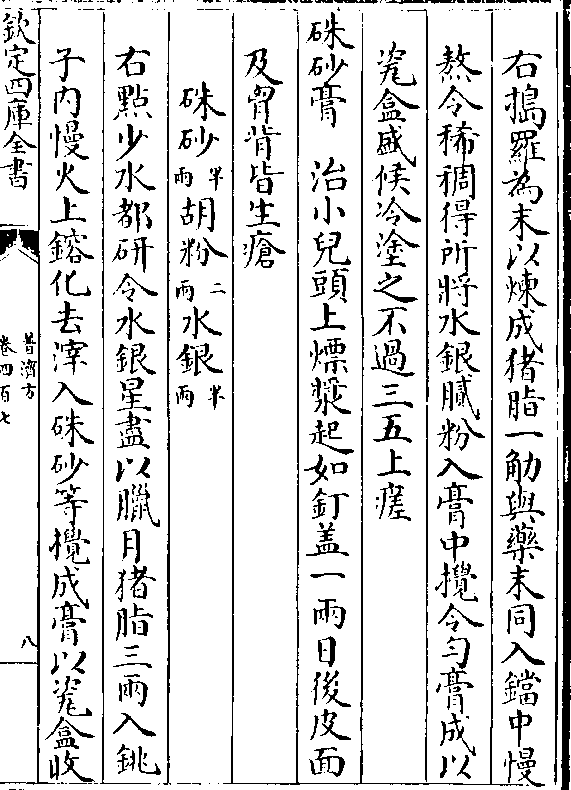 右搗羅為末以煉成猪脂一觔與藥末同入鐺中慢
熬令稀稠得所將水銀膩粉入膏中攪令勻膏成以
瓷盒盛候冷塗之不過三五上瘥
硃砂膏　治小兒頭上熛漿起如釘盖一兩日後皮面
及胷背皆生瘡
硃砂半兩胡粉二兩水銀半兩
右點少水都研令水銀星盡以臘月猪脂三兩入銚
子内慢火上鎔化去滓入硃砂等攪成膏以瓷盒收
欽定四庫全書
普濟方
卷四百七
八